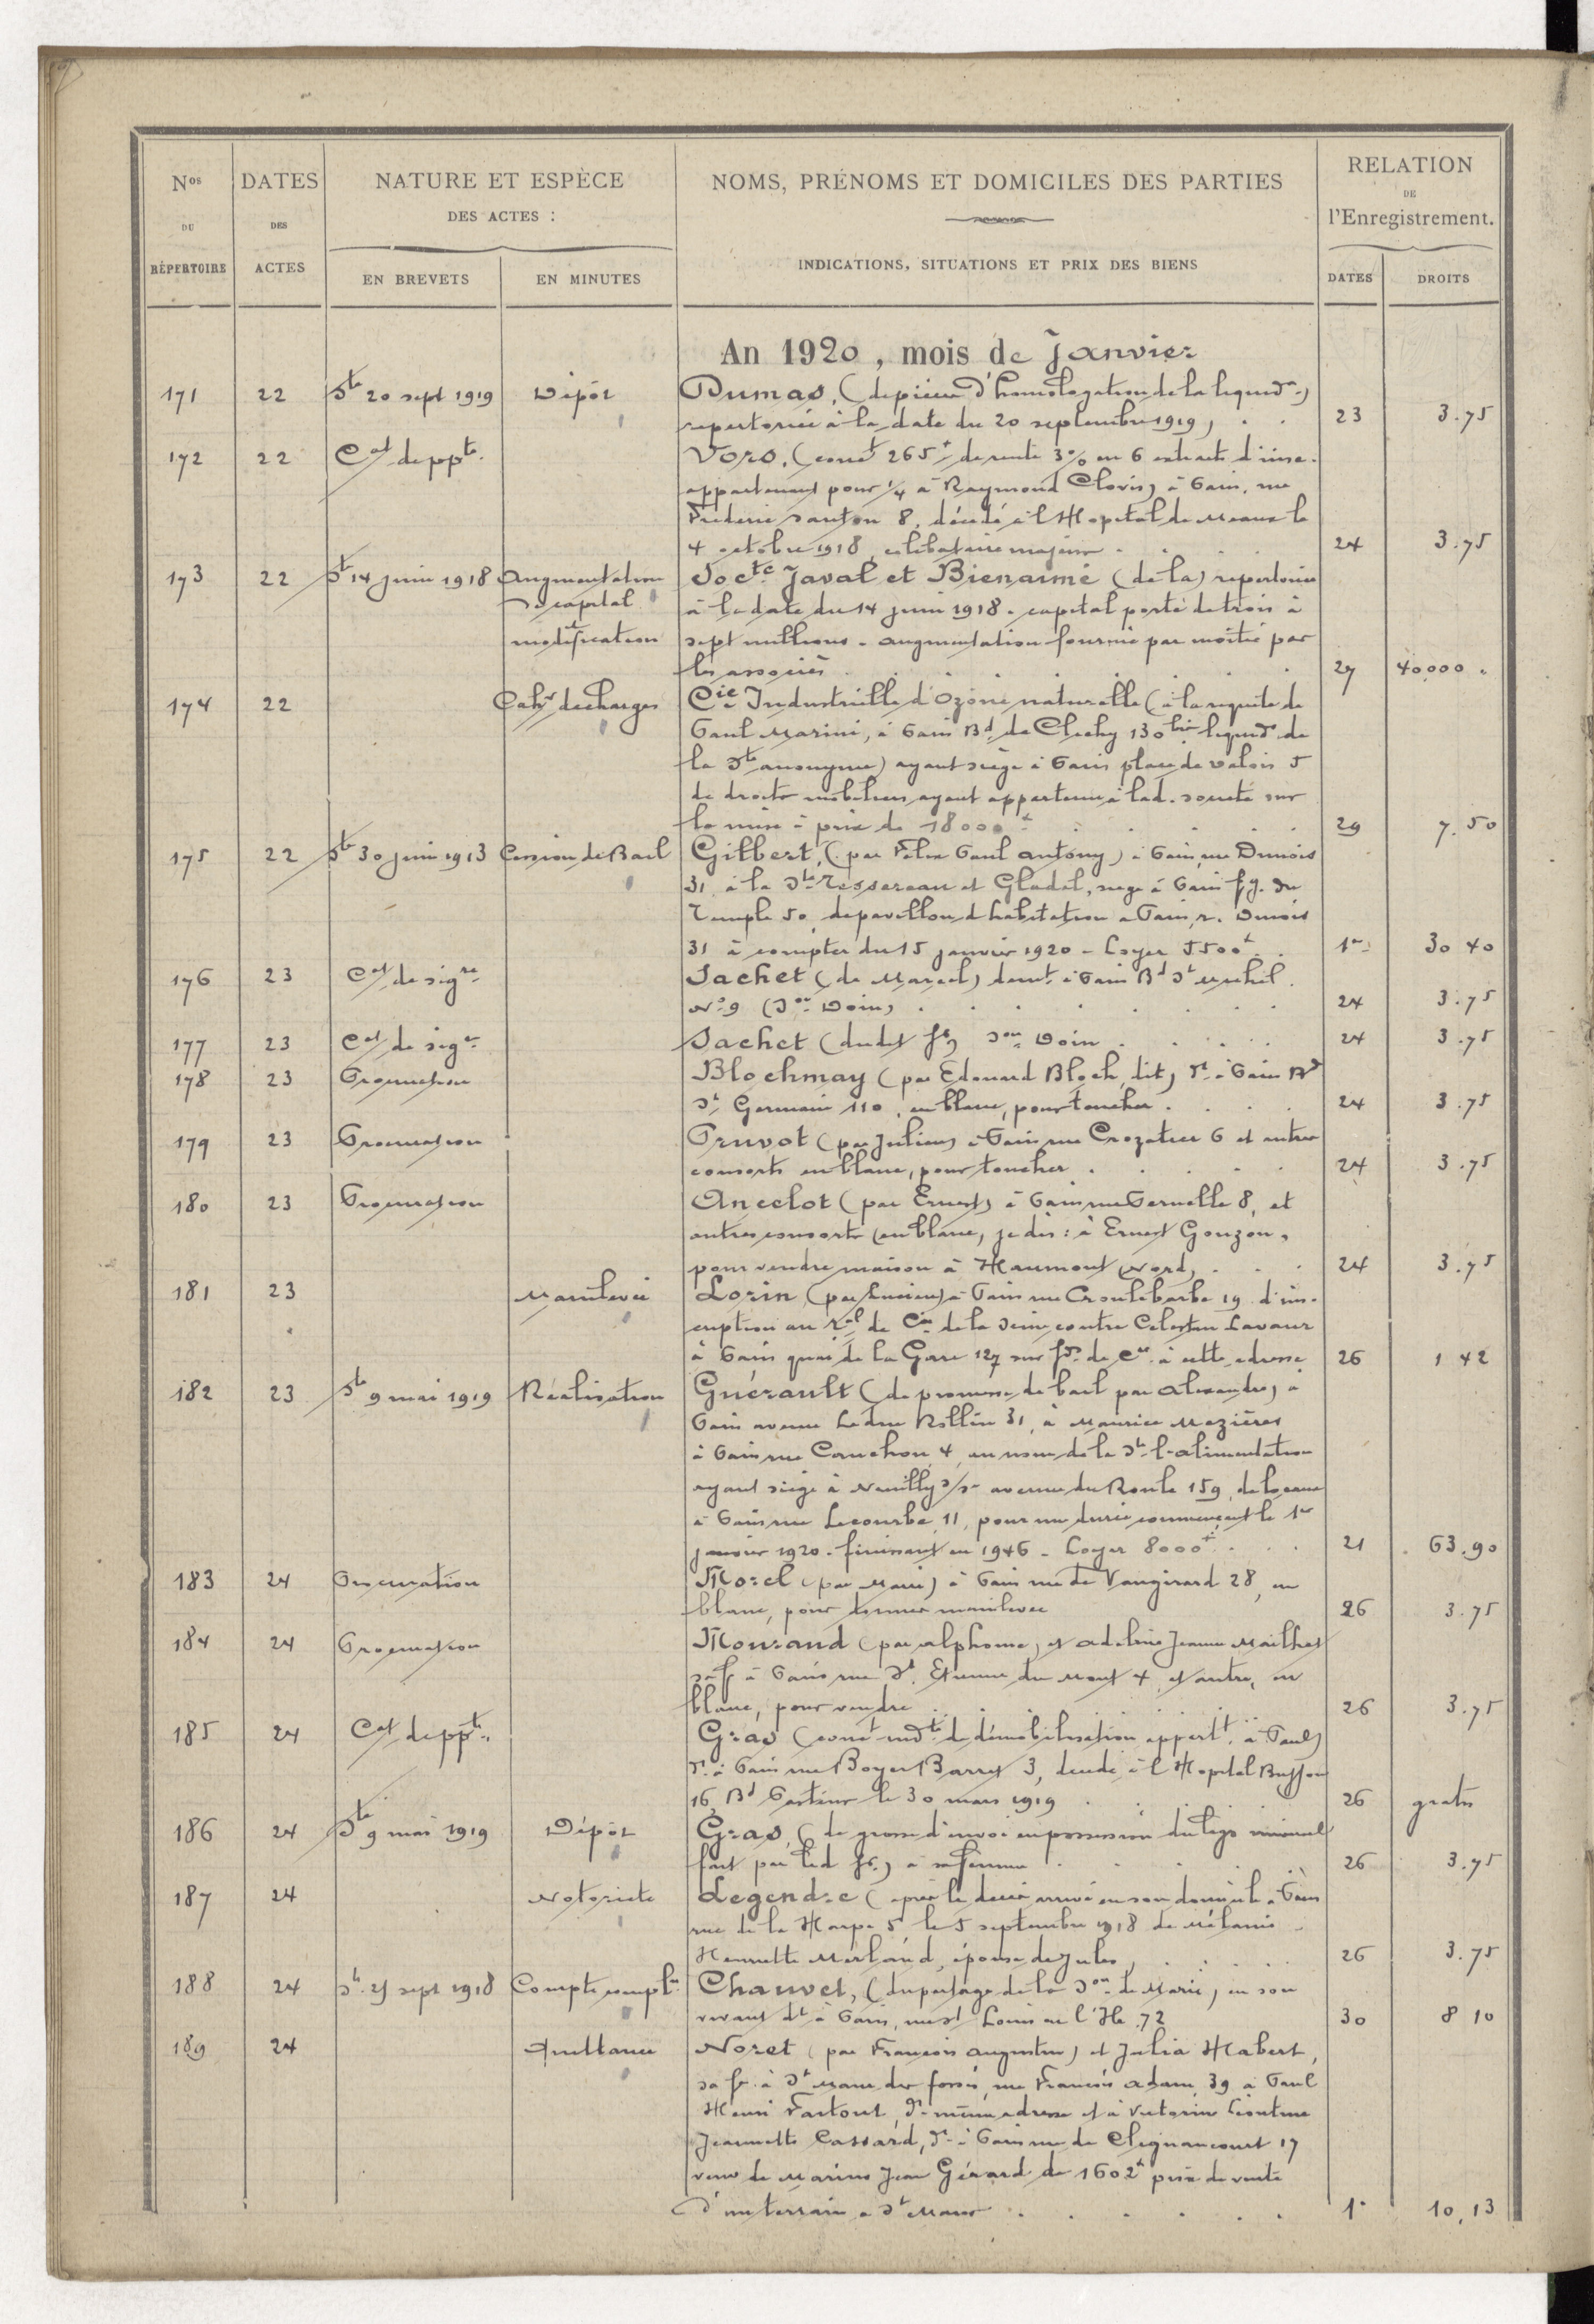 Nos DATES NATURE ET ESPÈCE NOMS, PRÉNOMS ET DOMICILES DES PARTIES RELATION
DU DES DES ACTES : DE
l'Enregistrement.
RÉPERTOIRE ACTES EN BREVETS EN MINUTES INDICATIONS, SITUATIONS ET PRIX DES BIENS DATES DROITS
An 1920, mois de Janvier
171 22 Ste 20 sept 1919 Dépôt Dumas, (de pièces d'homologation de la liquidon)
repertoriée à la date du 20 septembre 1919) 23 3.75
172 22 Cat de ppté Voro, (conct 265f de rente 3% en 6 extraits d'insc.
appartenant pour 1/4 à Raymond Clovis) à Paris, rue
Frederic Sauton 8, décédé à l'Hopital de Meaux le
4 octobre 1918, celibataire majeur 24 3.75
173 22 St 14 juin 1918 Augmentation Socté Javal et Bienaimé (de la) repertoriée
de capital à la date du 14 juin 1918. capital porté de trois à
modification sept millions - augmentation fournie par moitié par
les associés 27 40.000
174 22 Cahr de charges Cie Industrielle d'Ozone naturelle (à la requete de
Paul Marini, à Paris Bd de Clichy 130 bis liquidr de
la Sté anonyme) ayant siège à Paris place de Valois 5
de droits mobiliers ayant appartenu à lad. société sur
la mise à prix de 18000f 29 7.50
175 22 Ste 30 juin 1913 Cession de Bail Gilbert, (par Felix Paul Antony) à Paris, rue Dunois
31 à la Sté Tessereau et Gladel, siege à Paris fg. du
Temple 50, de pavillon d'habitation à Paris, r. Dunois
31 à compter du 15 janvier 1920 - Loyer 5500f 1er 30 40
176 23 Cat de sigre Sachet (de Marcel) demt à Paris Bd St Michel
No 9 (Son Doin) 24 3.75
177 23 Cat de sigre Sachet (dudt fs) Son Doin 24 3.75
178 23 Procuration Blochmay (par Edouard Bloch, dit) dt à Paris Bd
St Germain 110, en blanc, pour toucher 24 3.75
179 23 Procuration Pruvot (par Julien) à Paris rue Crozatier 6 et autres
consorts en blanc, pour toucher 24 3.75
180 23 Procuration Ancelot (par Ernest) à Paris rue Pernelle 8, et
autres consorts (en blanc, je dis : à Ernest Gouzon,
pour vendre maison à Haumont (Nord) 24 3.75
181 23 Mainlevée Lorin (par Lucien) à Paris rue Croulebarbe 19 d'ins-
cription au Tal de Cce de la Seine contre Celestin Lavaur
à Paris quai de la Gare 127 sur fds de cce à cette adresse 26 1 42
182 23 Ste 9 mai 1919 Réalisation Guérault (de promesse de bail par Alexandre) à
Paris avenue Ledru Rollin 31, à Maurice Mezières
à Paris rue Cauchon 4, au nom de la Sté l'alimentation
ayant siège à Neuilly s/Se avenue du Roule 159, de locaux
à Paris rue Lecourbe 11, pour une durée commençant le 1er
janvier 1920 - finissant en 1946 - Loyer 8000f 21 63.90
183 24 Procuration Morel (par Marie) à Paris rue de Vaugirard 28, en
blanc, pour donner mainlevée 26 3.75
184 24 Procuration Mourand (par Alphonse) et Adeline Jeanne Mailhes
sa fe à Paris rue St Etienne du Mont 4, et autre, en
blanc, pour vendre 26 3.75
185 24 Cat de ppté Gras (concnt indté de démobilisation appertt à Paul)
dt à Paris rue Boyer Barret 3, décédé à l'Hopital Buffon
16, Bd Pasteur le 30 mars 1919 26 gratis
186 24 Ste 9 mai 1919 Dépôt Gras, (de grosse d'envoi en possession du legs universel
fait par led fs) à sa femme 26 3.75
187 24 Notoriété Legendre (après le décès arrivé en son domicile à Paris
rue de la Harpe 5 le 5 septembre 1918 de Mélanie
Henriette Merland, épouse de Jules 26 3.75
188 24 St. 25 sept 1918 Compte compl. Chauvel, (du partage de la Son de Marie) en son
vivant dt à Paris, rue St Louis en l'Ile 72 30 8 10
189 24 Quittance Noret (par François Augustin) et Julia Habert,
sa fe à St Maur des fossés, rue François Adam 39 à Paul
Henri Fartout, dt même adresse et à Victorine Leontine
Jeannette Cassard, dt à Paris rue de Clignancourt 17
veuve de Marius Jean Gérard de 1602f prix de vente
d'un terrain à St Maur 1er 10,13